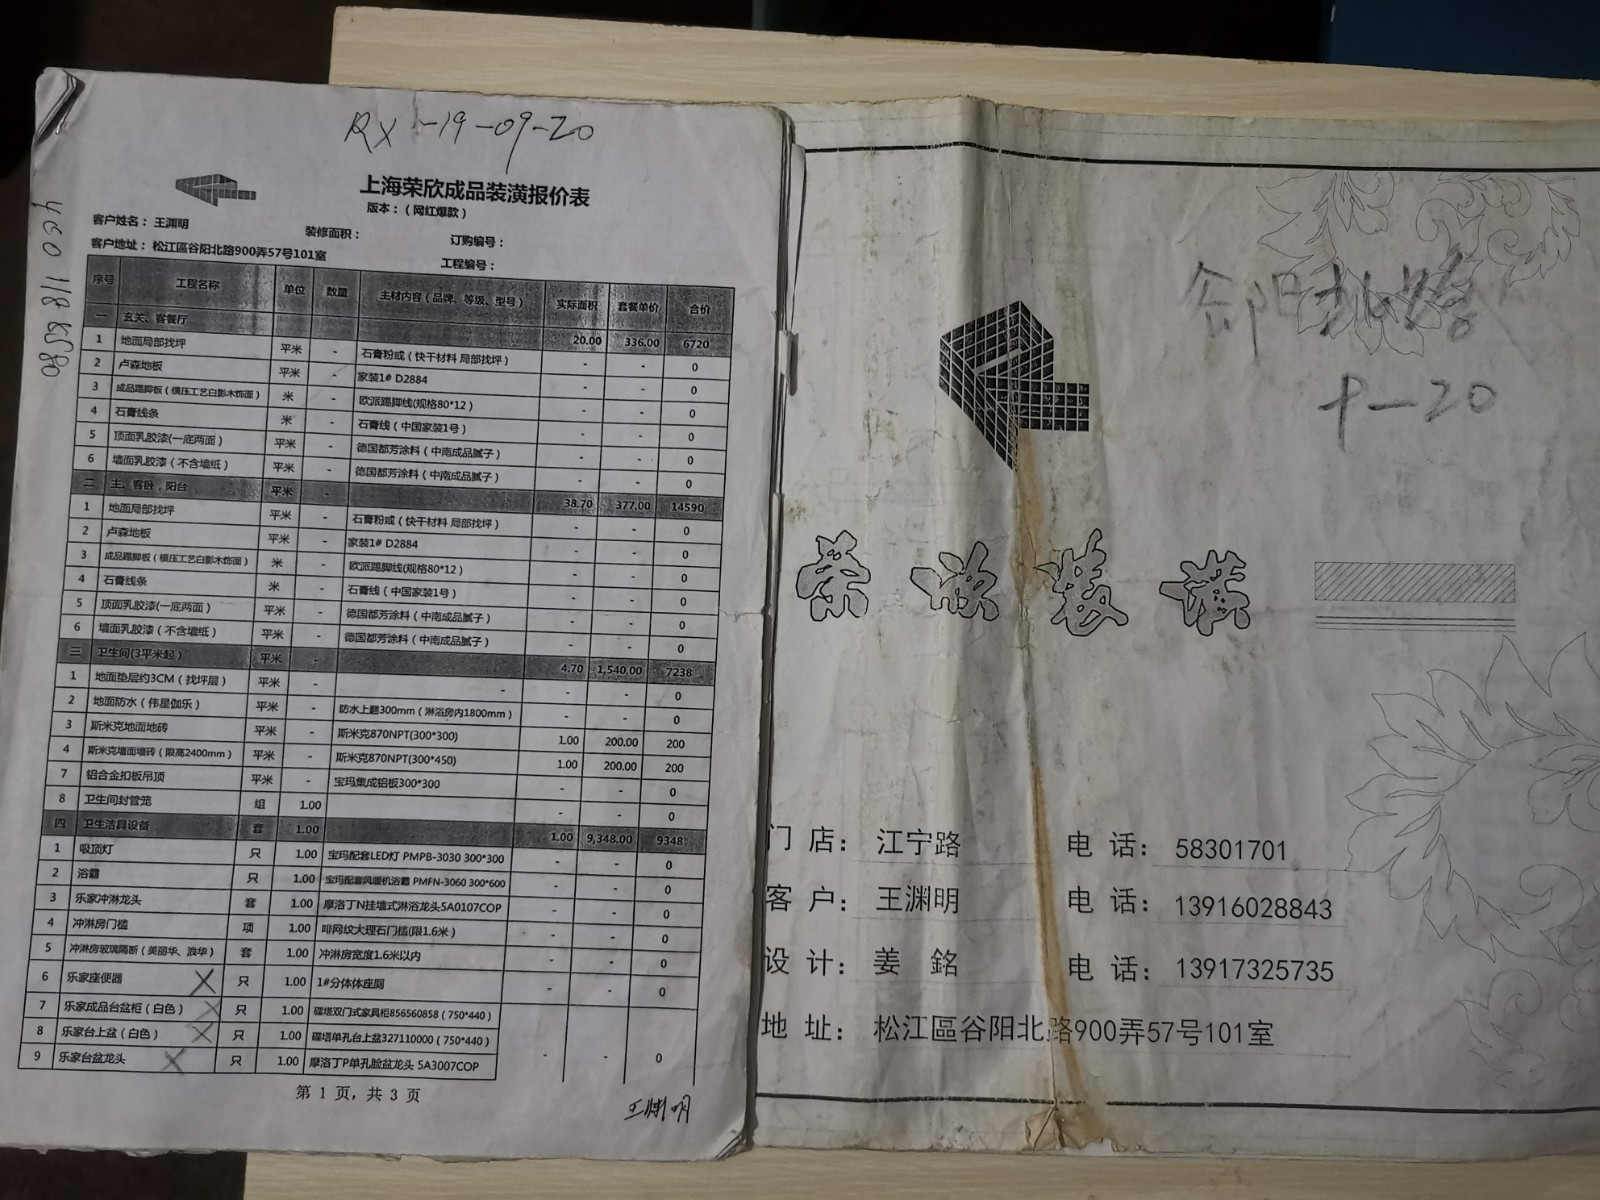 RX-19-09-20
YC0 118 8580
上海荣欣成品装潢报价表
版本：（网红爆款）
客户姓名： 王渊明 装修面积： 订购编号：
客户地址： 松江區谷阳北路900弄57号101室 工程编号：
序号 工程名称 单位 数量 主材内容（品牌、等级、型号） 实际面积 套餐单价 合价
一 玄关、客餐厅 20.00 336.00 6720
1 地面局部找坪 平米 - 石膏粉或（快干材料 局部找坪） - - 0
2 卢森地板 平米 - 家装1# D2884 - - 0
3 成品踢脚板（模压工艺白影木饰面） 米 - 欧派踢脚线(规格80*12） - - 0
4 石膏线条 米 - 石膏线（中国家装1号） - - 0
5 顶面乳胶漆(一底两面） 平米 - 德国都芳涂料（中南成品腻子） - - 0
6 墙面乳胶漆（不含墙纸） 平米 - 德国都芳涂料（中南成品腻子） - - 0
二 主、客卧，阳台 平米 - 38.70 377.00 14590
1 地面局部找坪 平米 - 石膏粉或（快干材料 局部找坪） - - 0
2 卢森地板 平米 - 家装1# D2884 - - 0
3 成品踢脚板（模压工艺白影木饰面） 米 - 欧派踢脚线(规格80*12） - - 0
4 石膏线条 米 - 石膏线（中国家装1号） - - 0
5 顶面乳胶漆(一底两面） 平米 - 德国都芳涂料（中南成品腻子） - - 0
6 墙面乳胶漆（不含墙纸） 平米 - 德国都芳涂料（中南成品腻子） - - 0
三 卫生间(3平米起） 平米 - 4.70 1,540.00 7238
1 地面垫层约3CM（找坪层） 平米 - - - - 0
2 地面防水（伟星伽乐） 平米 - 防水上翻300mm（淋浴房内1800mm） - - 0
3 斯米克地面地砖 平米 - 斯米克870NPT(300*300) 1.00 200.00 200
4 斯米克墙面墙砖（限高2400mm） 平米 - 斯米克870NPT(300*450) 1.00 200.00 200
7 铝合金扣板吊顶 平米 - 宝玛集成铝板300*300 - - 0
8 卫生间封管笼 组 1.00 - - 0
四 卫生洁具设备 套 1.00 - 1.00 9,348.00 9348
1 吸顶灯 只 1.00 宝玛配套LED灯 PMPB-3030 300*300 - - 0
2 浴霸 只 1.00 宝玛配套风暖机浴霸 PMFN-3060 300*600 - - 0
3 乐家冲淋龙头 套 1.00 摩洛丁N挂墙式淋浴龙头5A0107COP - - 0
4 冲淋房门槛 项 1.00 啡网纹大理石门槛(限1.6米） - - 0
5 冲淋房玻璃隔断（美丽华、浪华） 套 1.00 冲淋房宽度1.6米以内 - - 0
6 乐家座便器 只 1.00 1#分体体座厕 - - 0
7 乐家成品台盆柜（白色） 只 1.00 碟塔双门式家具柜856560858（750*440）
8 乐家台上盆（白色） 只 1.00 碟塔单孔台上盆327110000（750*440）
9 乐家台盆龙头 只 1.00 摩洛丁P单孔脸盆龙头 5A3007COP - - 0
第 1 页，共 3 页
王渊明
谷阳北路
9-20
荣欣装潢
门 店： 江宁路 电 话： 58301701
客 户： 王渊明 电 话： 13916028843
设 计： 姜 銘 电 话： 13917325735
地 址： 松江區谷阳北路900弄57号101室